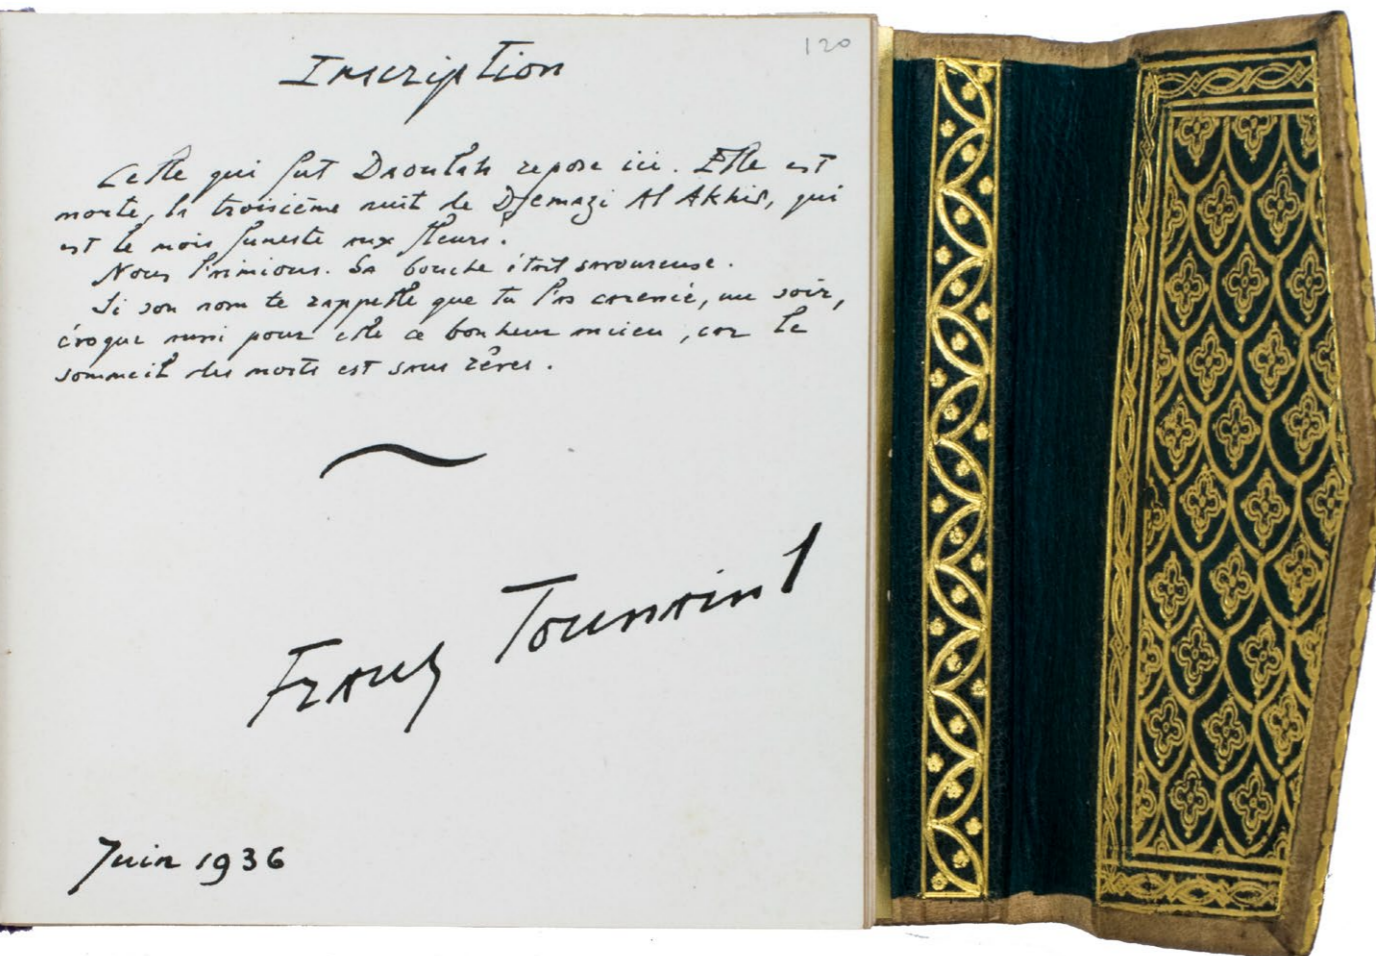 120
Inscription
Celle qui fut Daoulah repose ici. Elle est
morte, la troisième nuit de Djemazi Al Akhir, qui
est le mois funeste aux fleurs.
Nous l'aimions. Sa bouche était savoureuse.
Si son nom te rappelle que tu l'as caressée, un soir,
évoque aussi pour elle ce bonheur ancien, car le
sommeil des morts est sans rêves.
Franz Toussaint
Juin 1936